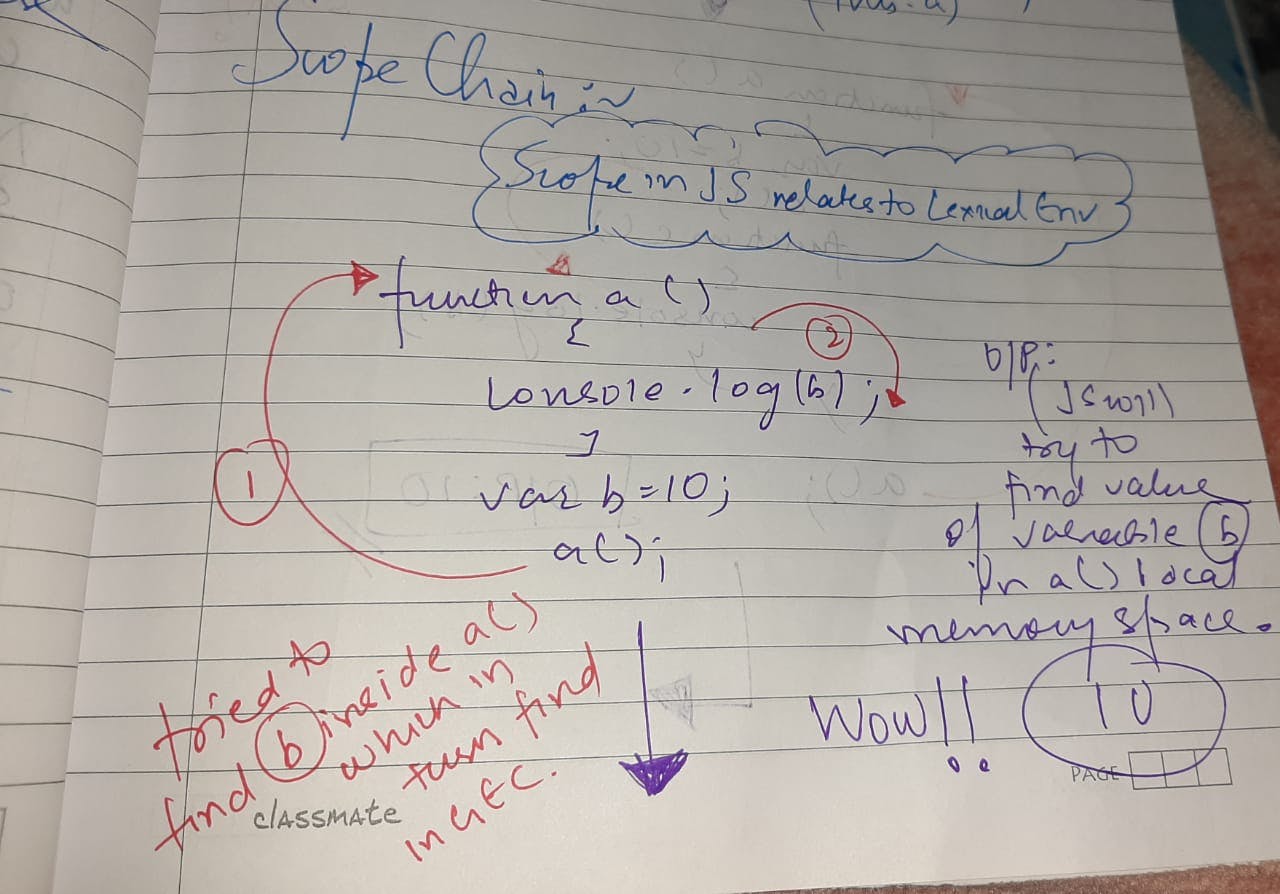 (this.a)
Scope Chain :~
Scope in JS relates to Lexical Env
function a ()
{
console.log(b);
}
var b = 10;
a();
1
2
O/P:
(JS will
try to
find value
of variable b
in a() local
memory space.
Wow!! 10
tried to
find b inside a()
which in
turn find
in GEC.
classmate
PAGE